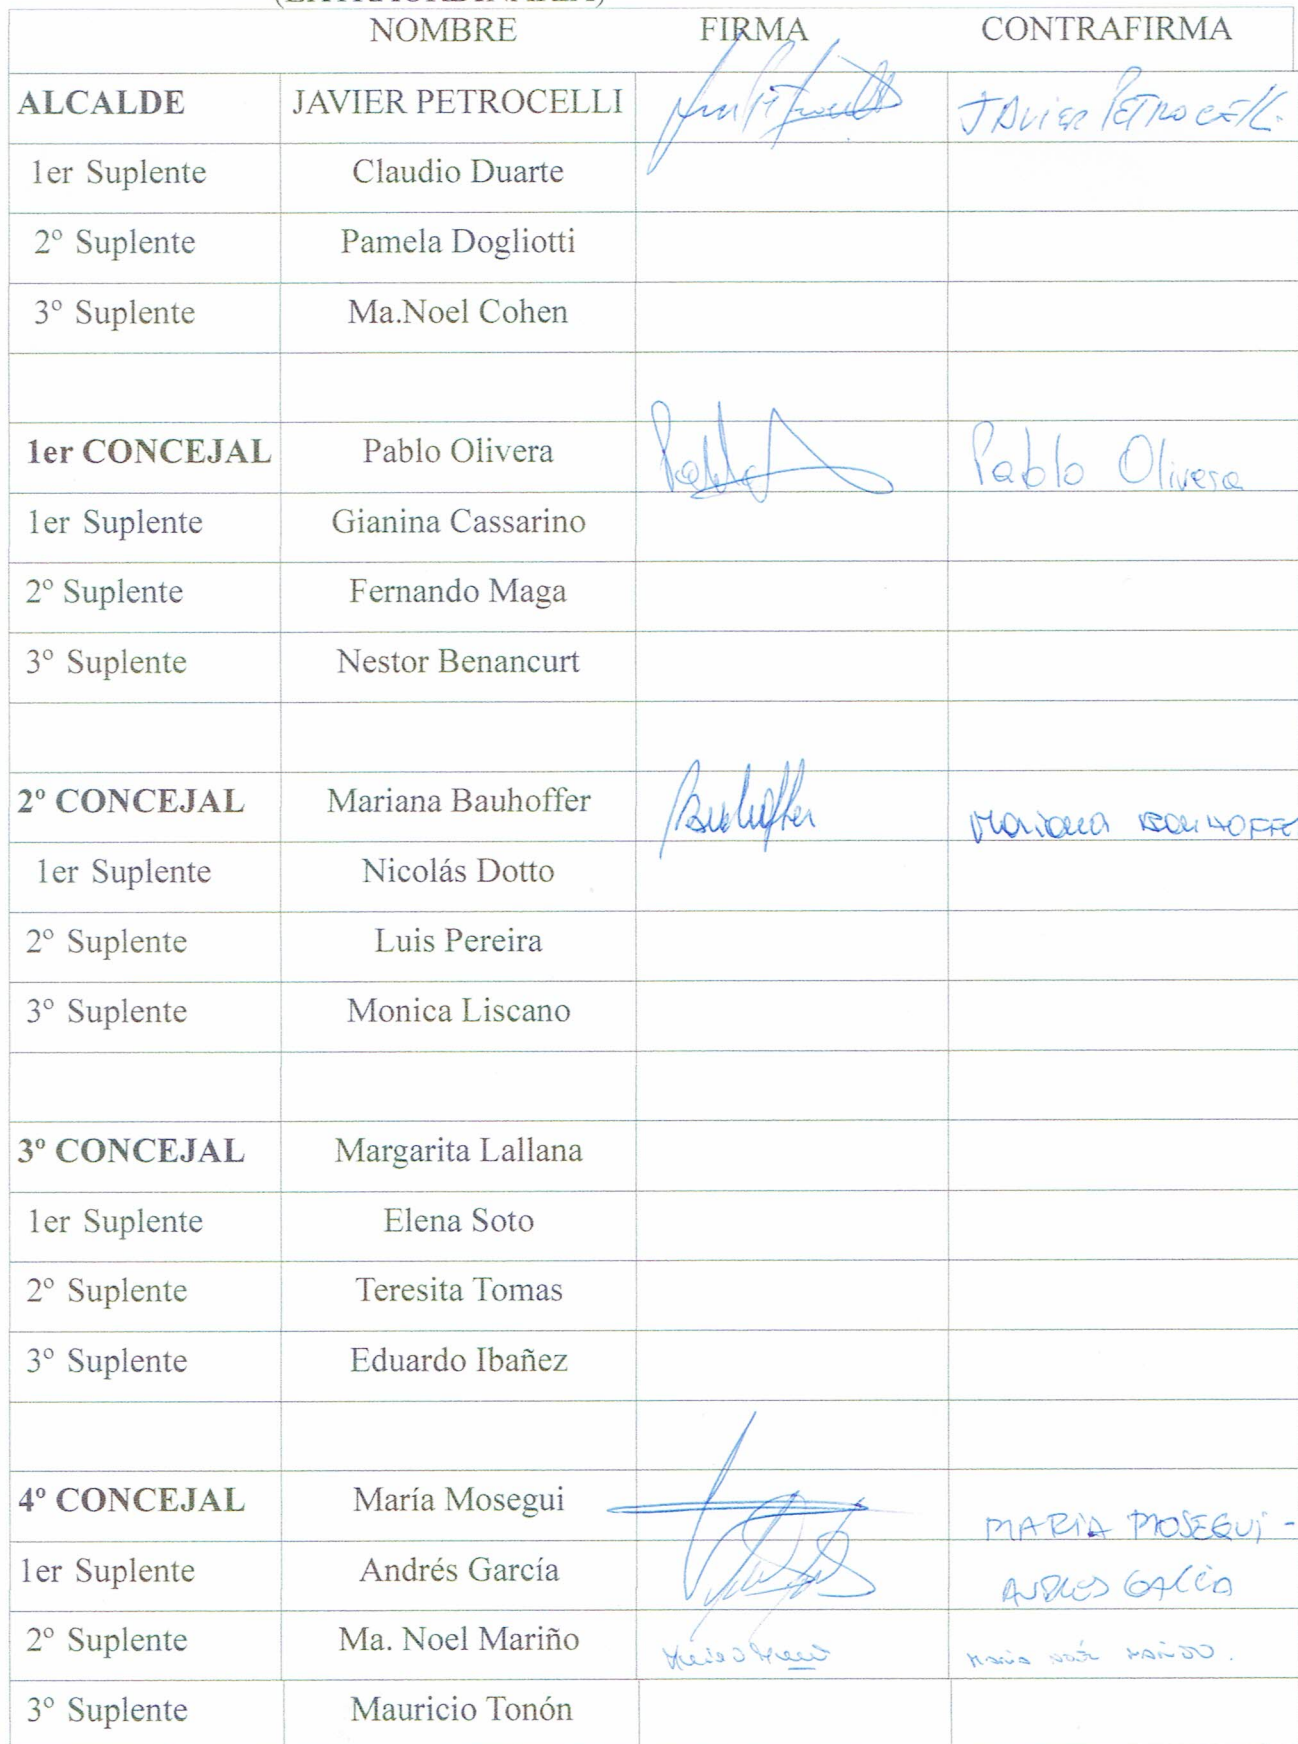 (EXTRAORDINARIA)
NOMBRE FIRMA CONTRAFIRMA
ALCALDE JAVIER PETROCELLI JAVIER PETROCELLI
1er Suplente Claudio Duarte
2º Suplente Pamela Dogliotti
3º Suplente Ma.Noel Cohen
1er CONCEJAL Pablo Olivera Pablo Pablo Olivera
1er Suplente Gianina Cassarino
2º Suplente Fernando Maga
3º Suplente Nestor Benancurt
2º CONCEJAL Mariana Bauhoffer Bauhoffer Mariana BAUHOFFE
1er Suplente Nicolás Dotto
2º Suplente Luis Pereira
3º Suplente Monica Liscano
3º CONCEJAL Margarita Lallana
1er Suplente Elena Soto
2º Suplente Teresita Tomas
3º Suplente Eduardo Ibañez
4º CONCEJAL María Mosegui MARIA MOSEGUI -
1er Suplente Andrés García ANDRES GARCIA
2º Suplente Ma. Noel Mariño
3º Suplente Mauricio Tonón